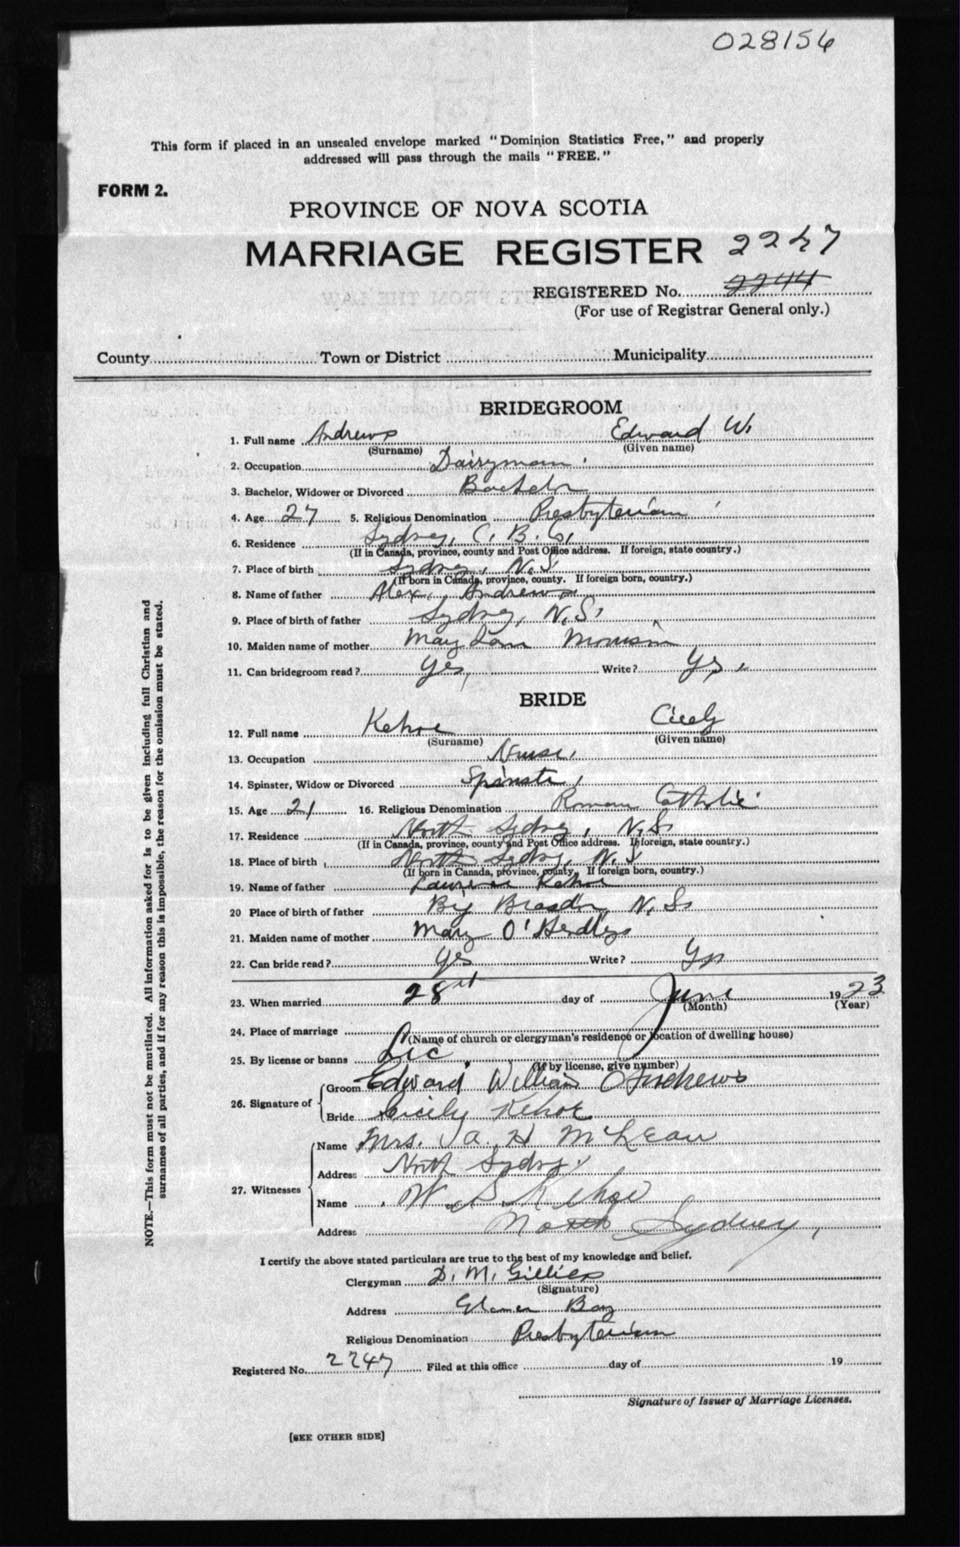 028156
This form if placed in an unsealed envelope marked "Dominion Statistics Free," and properly
addressed will pass through the mails "FREE."
FORM 2.
PROVINCE OF NOVA SCOTIA
MARRIAGE REGISTER 2247
REGISTERED No. 2244
(For use of Registrar General only.)
County Town or District Municipality
BRIDEGROOM
1. Full name Andrews Edward W.
(Surname) (Given name)
2. Occupation Dairyman
3. Bachelor, Widower or Divorced Bachelor
4. Age 27 5. Religious Denomination Presbyterian
6. Residence Sydney, C. B. Co,
(If in Canada, province, county and Post Office address. If foreign, state country.)
7. Place of birth Sydney, N.S
(If born in Canada, province, county. If foreign born, country.)
8. Name of father Alex. Andrews
9. Place of birth of father Sydney, N.S.
10. Maiden name of mother Mary Morrison
11. Can bridegroom read? Yes, Write? Yes,
BRIDE
12. Full name Kehoe Cicely
(Surname) (Given name)
13. Occupation Nurse,
14. Spinster, Widow or Divorced Spinster,
15. Age 21 16. Religious Denomination Roman Catholic
17. Residence North Sydney, N.S.
(If in Canada, province, county and Post Office address. If foreign, state country.)
18. Place of birth North Sydney, N.S
(If born in Canada, province, county. If foreign born, country.)
19. Name of father Kehoe
20 Place of father Big Brasdor, N.S.
21. Maiden name of mother Mary
22. Can bride read? Yes Write? Yes
23. When married 28 day of June 1923
(Month) (Year)
24. Place of marriage
(Name of church or clergyman's residence or location of dwelling house)
25. By license or banns Lic
(If by license, give number)
26. Signature of Groom Edward William Andrews
Bride Cicily Kehoe
27. Witnesses Name Mrs. J A. H McLean
Address North Sydney
Name W. Kehoe
Address North Sydney,
I certify the above stated particulars are true to the best of my knowledge and belief.
Clergyman D. M. Gillies
(Signature)
Address Bay
Religious Denomination Presbyterian
Registered No. 2247 Filed at this office day of 19
Signature of Issuer of Marriage Licenses.
[SEE OTHER SIDE]
NOTE.—This form must not be mutilated. All information asked for is to be given including full Christian and
surnames of all parties, and if for any reason this is impossible, the reason for the omission must be stated.